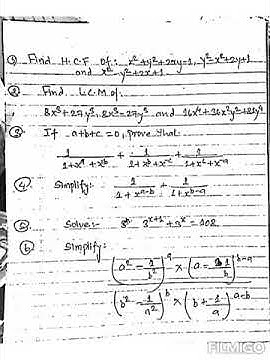 ① Find H.C.F of: x²+y²+2xy-1, y²-x²+2y+1
and x²-y²+2x+1
② Find L.C.M of.
8x³+27y³, 8x³-27y³ and 16x⁴+36x²y²+81y⁴
③ If a+b+c=0, prove that
1/(1+x^a+x^-b) + 1/(1+x^b+x^-c) + 1/(1+x^c+x^-a)
④ Simplify: 1/(1+x^(a-b)) + 1/(1+x^(b-a))
⑤ Solve:- 3^(x+1)+3^x=108
⑥ Simplify:
(a²-1/b²)^a × (a-1/b)^(b-a)
(b²-1/a²)^b × (b+1/a)^(a-b)
FILMIGO